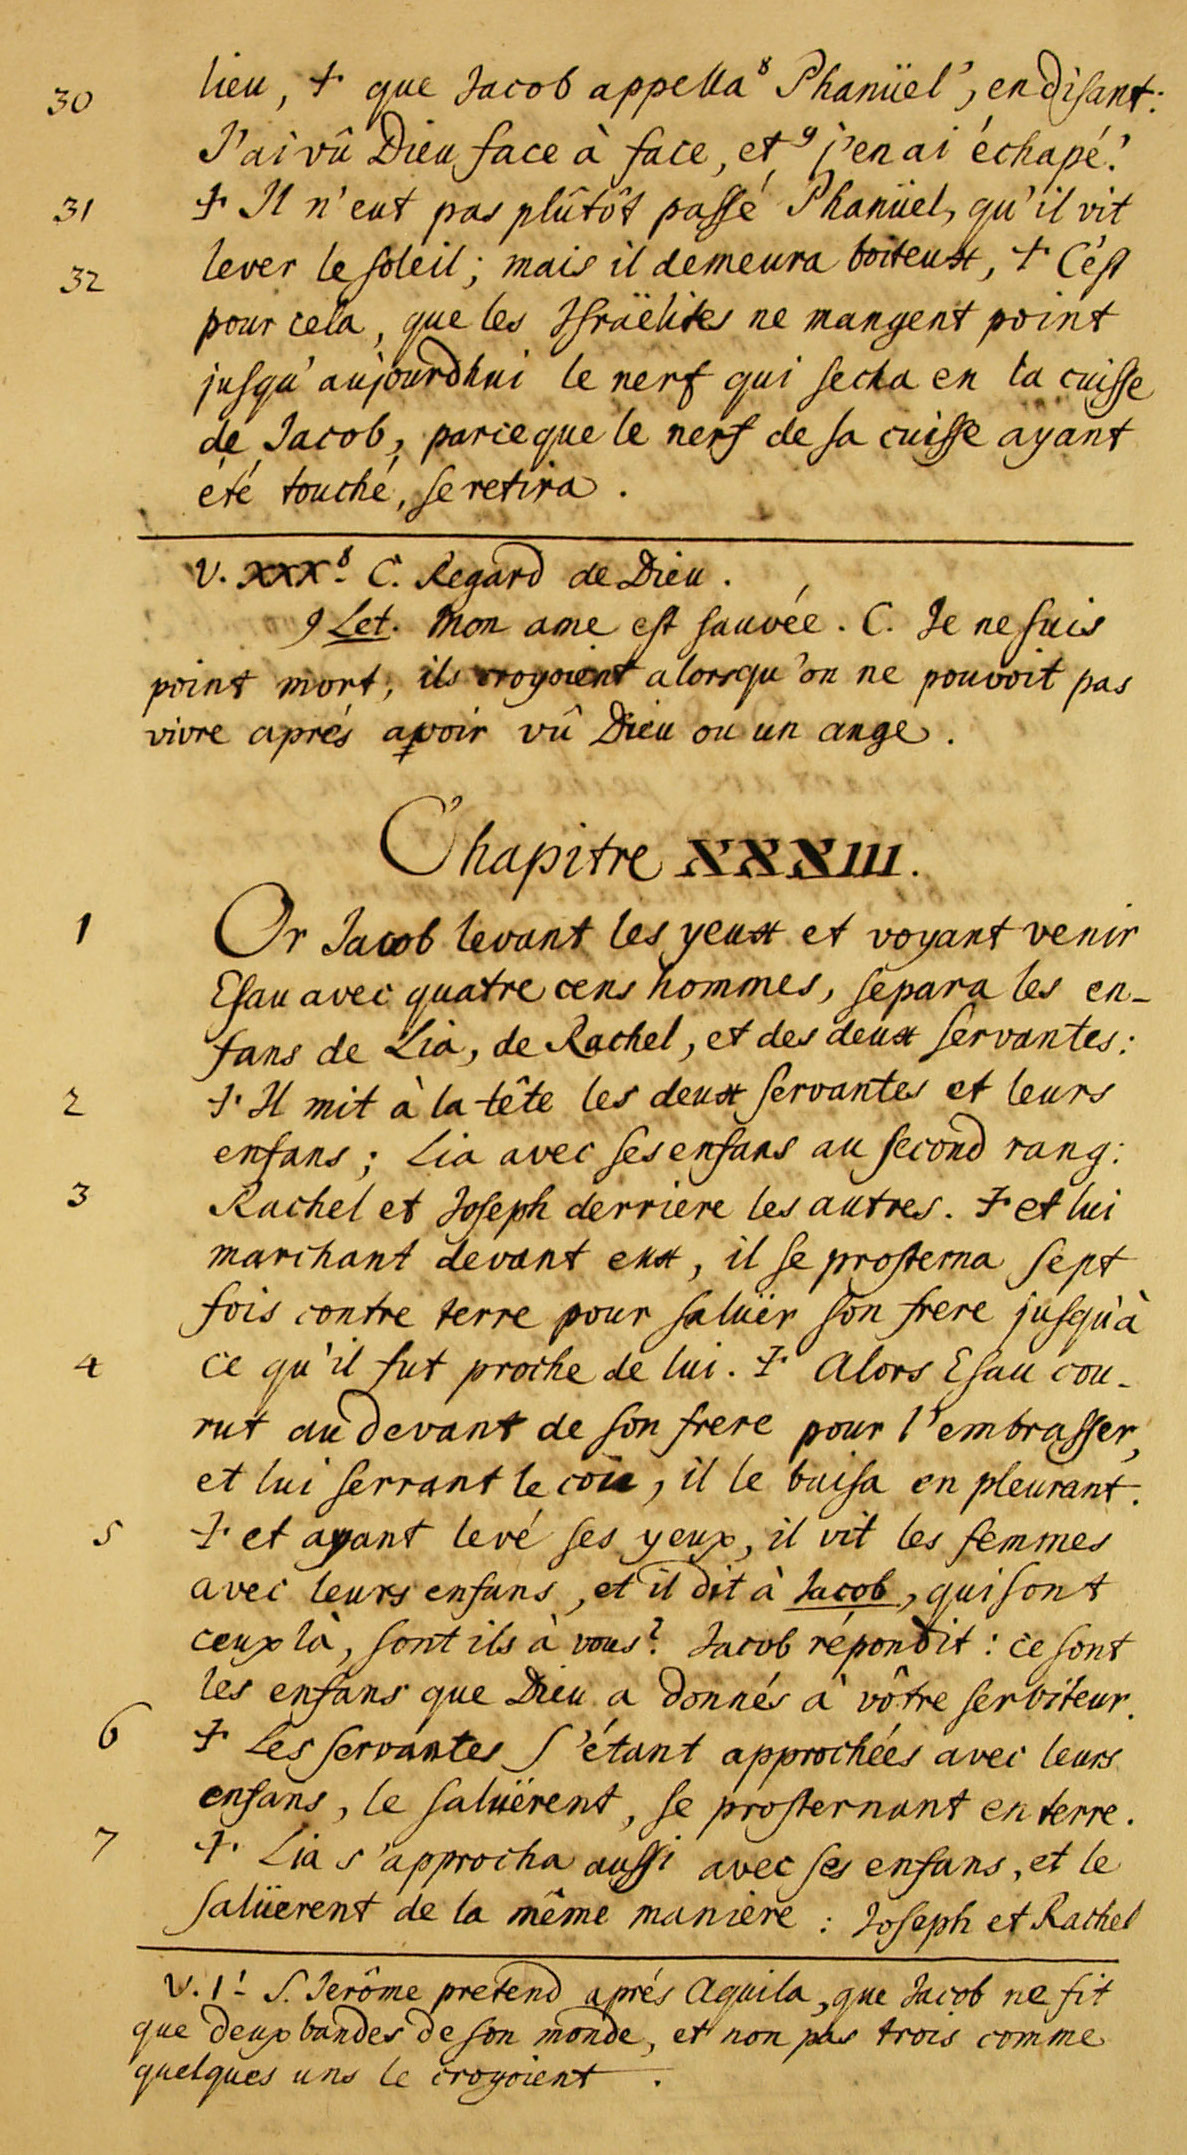 30 lieu, ✝ que Jacob appella⁸ Phanüel, en disant:
J'ai vû Dieu face à face, et ⁹ j'en ai échapé.
31 ✝ Il n'eut pas plûtôt passé Phanüel, qu'il vit
32 lever le soleil; mais il demeura boiteux, ✝ C'est
pour cela, que les Israëlites ne mangent point
jusqu'aujourdhui le nerf qui secha en la cuisse
de Jacob, parceque le nerf de sa cuisse ayant
été touché, se retira.
V. XXX⁸. C. Regard de Dieu.
9 Let. Mon ame est sauvée. C. Je ne suis
point mort, ils croyoient alorsqu'on ne pouvoit pas
vivre aprés avoir vû Dieu ou un ange.
Chapitre XXXIII.
1 Or Jacob levant les yeux et voyant venir
Esau avec quatre cens hommes, separa les en-
fans de Lia, de Rachel, et des deux servantes:
2 ✝ Il mit à la tête les deux servantes et leurs
enfans; Lia avec ses enfans au second rang:
3 Rachel et Joseph derriere les autres. ✝ et lui
marchant devant eux, il se prosterna sept
fois contre terre pour salüer son frere jusqu'à
4 ce qu'il fut proche de lui. ✝ Alors Esau cou-
rut au devant de son frere pour l'embrasser,
et lui serrant le cou, il le baisa en pleurant.
5 ✝ et ayant levé ses yeux, il vit les femmes
avec leurs enfans, et il dit à Jacob, qui sont
ceux là, sont ils à vous? Jacob répondit: ce sont
les enfans que Dieu a donnés à vôtre serviteur.
6 ✝ Les servantes s'étant approchées avec leurs
enfans, le salüerent, se prosternant en terre.
7 ✝ Lia s'approcha aussi avec ses enfans, et le
salüerent de la même maniere: Joseph et Rachel
V. 1! S. Jerôme pretend aprés Aquila, que Jacob ne fit
que deux bandes de son monde, et non pas trois comme
quelques uns le croyoient.